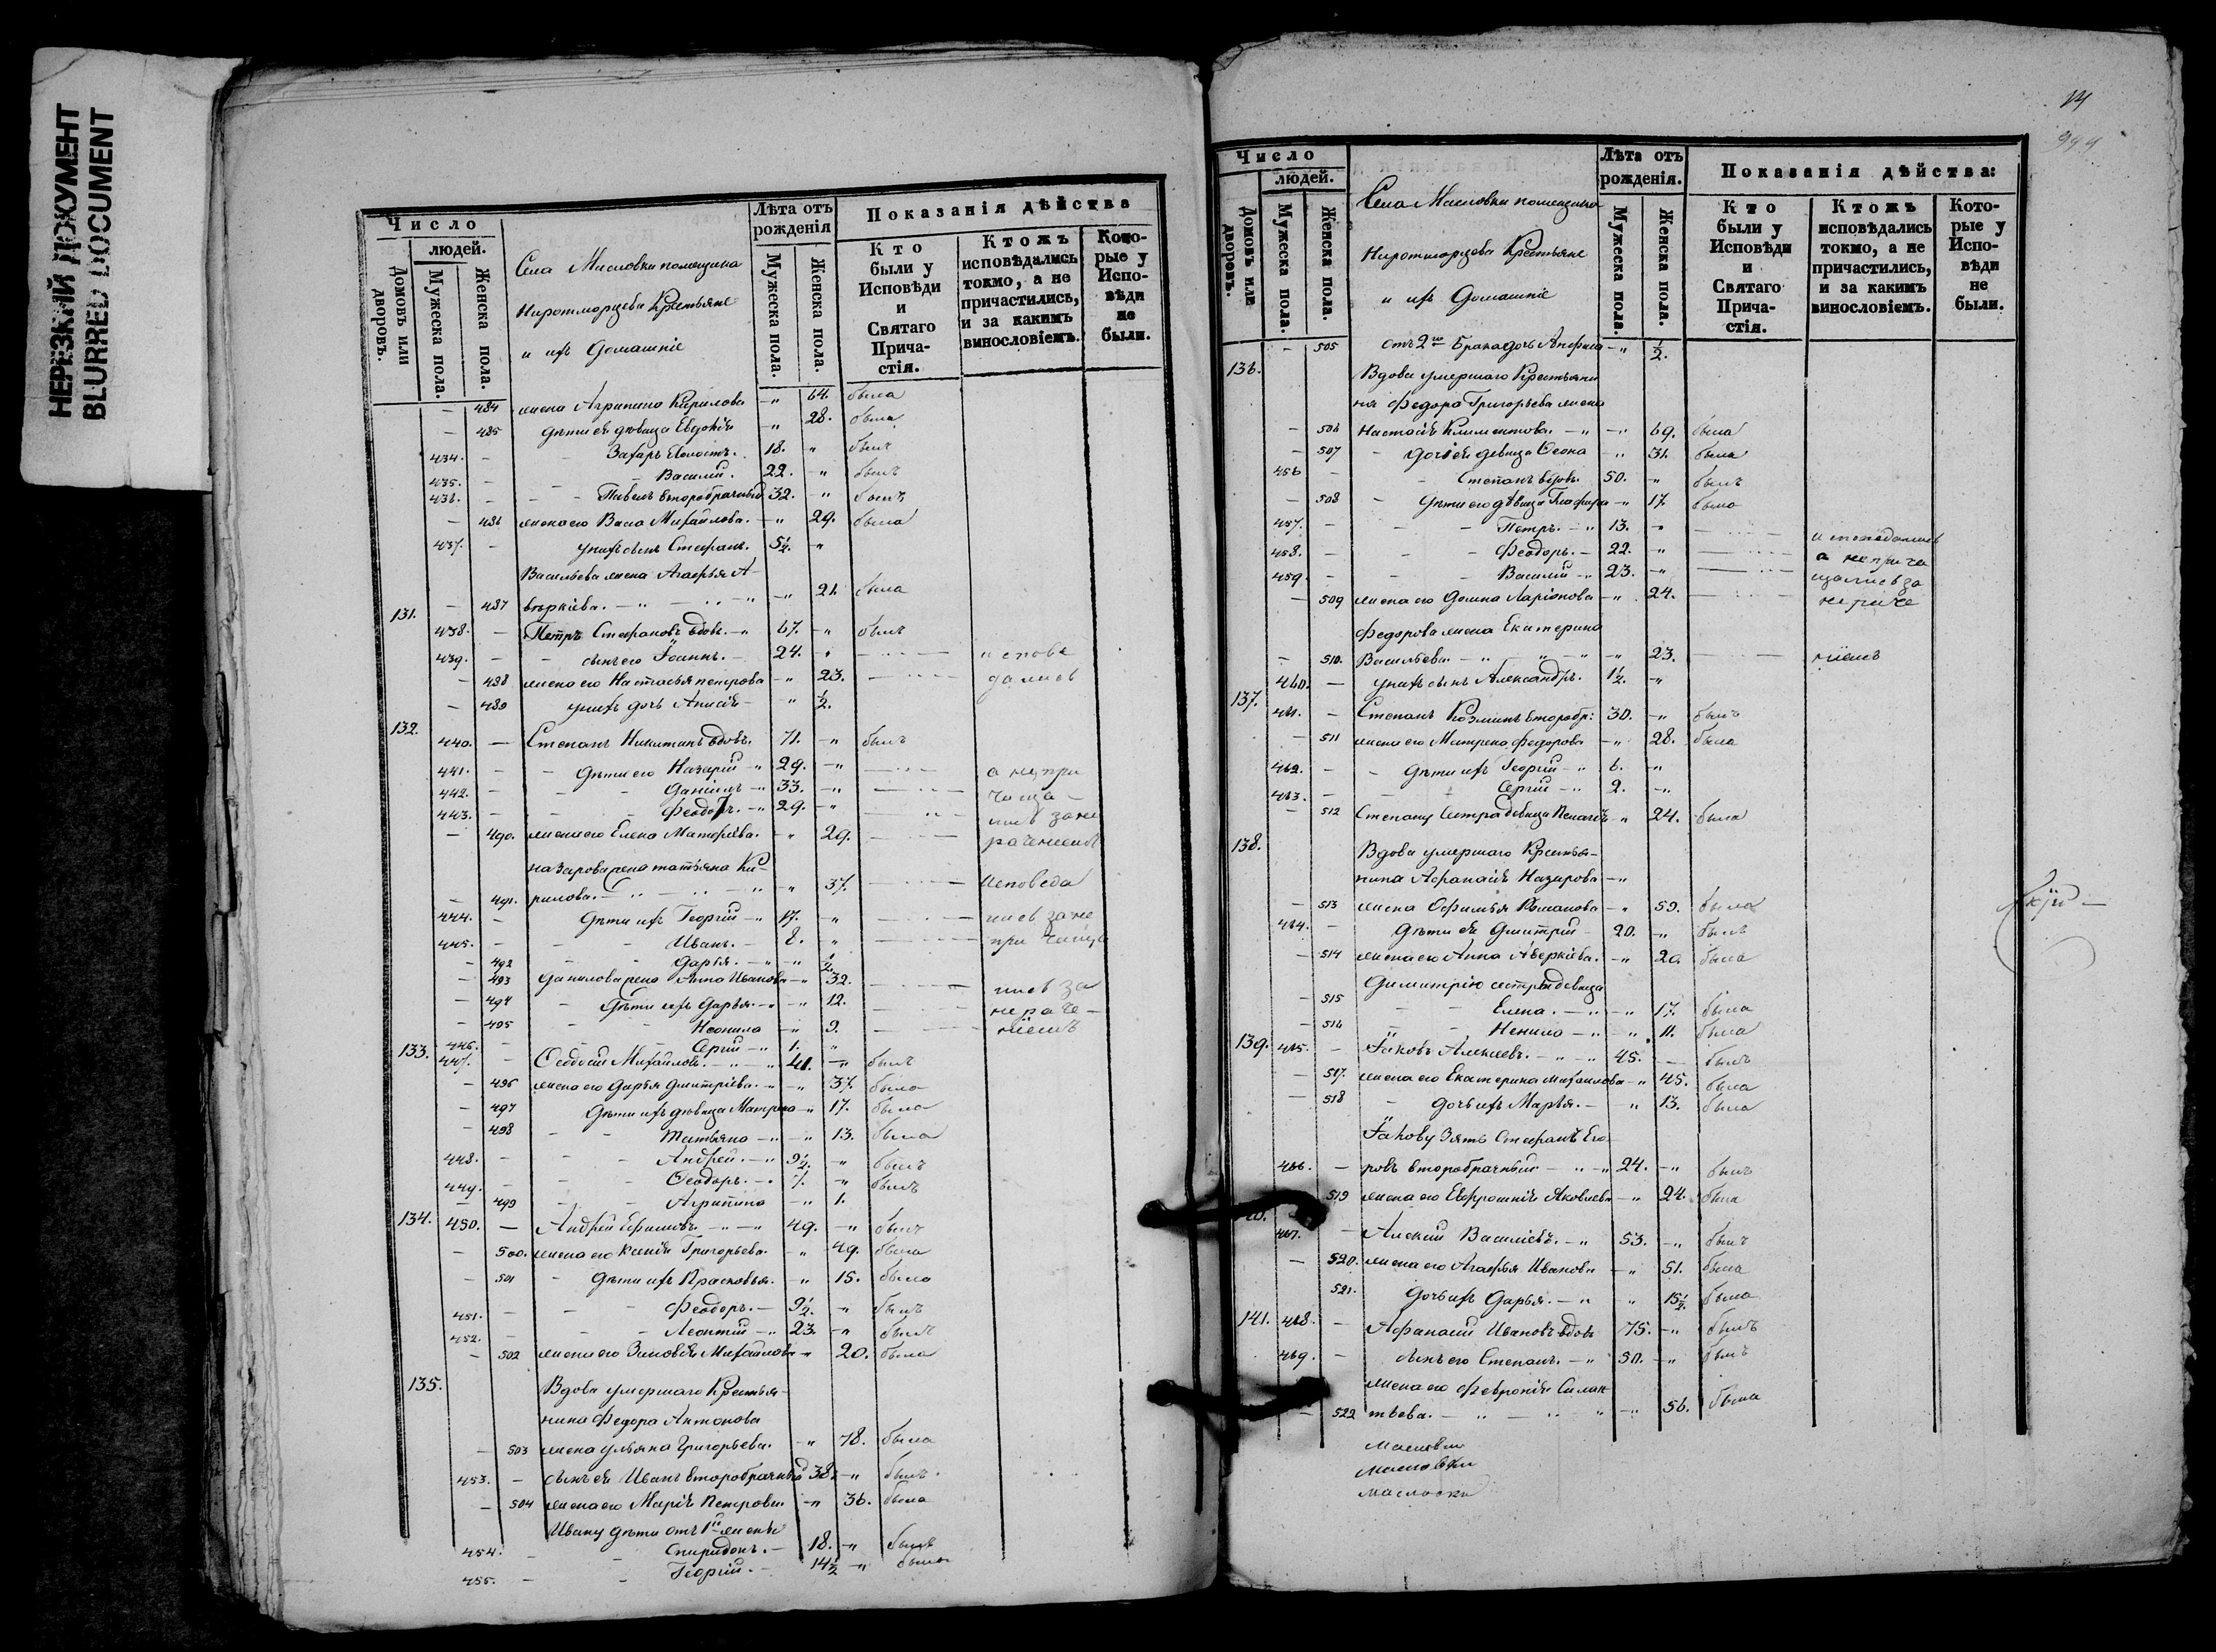 НЕРЕЗКИЙ ДОКУМЕНТ
BLURRED DOCUMENT
Число
людей.
Домовъ или дворовъ.
Мужеска пола.
Женска пола.
Села Масловки помещика
Крестьяне
и ихъ Домашніе
Лѣта отъ рожденія
Мужеска пола.
Женска пола.
Показанія дѣйства
Кто были у Исповѣди и Святаго Причастія.
Ктожъ исповѣдались токмо, а не причастились, и за какимъ винословіемъ.
Которые у Исповѣди не были.
— 484 жена Агрипина Кирилова — " 64. была
— 485 дѣти ея девица Евдокія — " 28. была
434. — Захаръ холостъ. 18. " былъ
435. — Василий. 22. — " былъ
436. — Павелъ второбрачный 32. — " былъ
— 486 жена его Васа Михайлова. — " 29. была
437. — у нихъ сынъ Стефанъ. 5½. — "
Васильева жена Агафья А-
— 487 веркіева. — " — " 21. была
131.
438. — Петръ Стефановъ вдовъ. — " 67. — " былъ
439. — сынъ его Іоаннъ. — 24. " — испове
— 488 жена его Настасья петрова — " 23. — дались
— 489 у нихъ дочь Анисія — " ½.
132.
440. — Степанъ Никитинъ вдовъ. 71. — " былъ
441. — дѣти его Назарий — " 29. — " — а не при
442. — Даніилъ — " 33. — " — чаща
443. — Феодоръ. — " 29. — " — лись зане
— 490. жена его Елена Матфѣева. — " 29. — раченіемъ
назарова жена татьяна Ки-
— 491. рилова. — " — " 37. — Исповеда
444. — дѣти ихъ Георгій — " 17. — " — лись за не
445. — Иванъ. — 8. " —
— 492 Дарья. — " — " ½.
— 493 Данилова жена Анна Иванова — " 32.
— 494 дѣти ихъ Дарья. — " — " 12. — лись за
— 495 Неонила — " 9. — нераче-
446. — Сергій — " 1. " ніемъ
133. 447. — Феодосій Михайловъ. — " — " 41. — " былъ
— 496 жена его Дарья Дмитріева. — " — " 37. была
— 497 дѣти ихъ девица Матрена — " 17. была
— 498 Татьяна — " — " 13. была
448. — Андрей. — " 9½. — " былъ
449. — Феодоръ. — " 7. — " былъ
— 499 Агрипина — " 1.
134. 450. — Андрей Ефимовъ. — " — " 49. — " былъ
— 500. жена его Ксенія Григорьева. — " 49. была
— 501 дѣти ихъ Прасковья. — " 15. была
451. — Феодоръ. — 9½. " былъ
452. — Леонтий — " 23. — " былъ
— 502 жена его Зиновія Михайлова — " 20. была
135. Вдова умершаго Крестья-
нина Федора Антонова
— 503 жена ульяна Григорьева. — " 78. была
453. — сынъ ея Иванъ второбрачный 38. — " былъ.
— 504 жена его Марія Петрова. — " 36. была
Ивану дѣти отъ 1й жены
454. — Спиридонъ. — 18. — " былъ
455. — Георгій. — 14½ — " былъ
14
Число
людей.
Домовъ или дворовъ.
Мужеска пола.
Женска пола.
Села Масловки помещика
Крестьяне
и ихъ Домашніе
Лѣта отъ рожденія.
Мужеска пола.
Женска пола.
Показанія дѣйства:
Кто были у Исповѣди и Святаго Причастія.
Ктожъ исповѣдались токмо, а не причастились, и за какимъ винословіемъ.
Которые у Исповѣди не были.
— 505 отъ 2го брака дочь — " ½.
136. Вдова умершаго Крестьяни
на Федора Григорьева жена
— 506 Настасія Климентова. — " — " 69. была
— 507 дочь ея девица — " 31. была
456 Степанъ вдовъ. 50. — " былъ
— 508 дѣти его дѣвица Глафира — " 17. была
457. — Петръ. — " 13. — " — исповедались
458. — Феодоръ. — 22. " — а неприча
459. — Василий — " 23. — " — щались за
— 509 жена его Домна Ларіонова — " 24. — нераче
Федорова жена Екатерина
— 510. Васильева. — " — " — " 23. — ніемъ
460. — у нихъ сынъ Александръ. 1½. — "
137.
461. — Степанъ Козминъ второбр: 30. — " былъ
— 511 жена его Матрена федорова — " 28. была
462. — дѣти ихъ Георгій — " 6. — "
463. — Сергій — " 2. — "
— 512 Степану Сестра девица Пелагія — " 24. была
138. Вдова умершаго Крестья-
нина Афанасія Назарова — "
— 513 жена Ефимья — " 59. была
464. — Дѣти ея Дмитрій — 20. — " былъ
— 514 жена его Анна Аверкіева. — " 20. была
Димитрію сестры девицы
— 515 Елена. — " — " 17. была
— 516 Ненила — " " 11. была
139. 465. — Іаковъ Алексеевъ. — " — " 45. — былъ
— 517. жена его Екатерина михаилова — " 45. была
— 518 дочь ихъ Марья. — " 13. была
Іакову Зять Стефанъ Его-
466. — ровъ второбрачный — " — " 24. — " былъ
519 жена его Евфросинія Яковлева — " 24. была
467. — Алексий Василіевъ. — " 53. — " былъ
— 520. жена его Агафья Иванова — " 51. была
521. дочь ихъ Дарья. — " " 15½. была
141. 468. — Афанасий Ивановъ вдовъ 75. — " былъ
469. — сынъ его Степанъ. — " 50. — " былъ
жена его февронія Силан-
— 522 тьева. — " — " — " 56. была
Масловки
Масловки